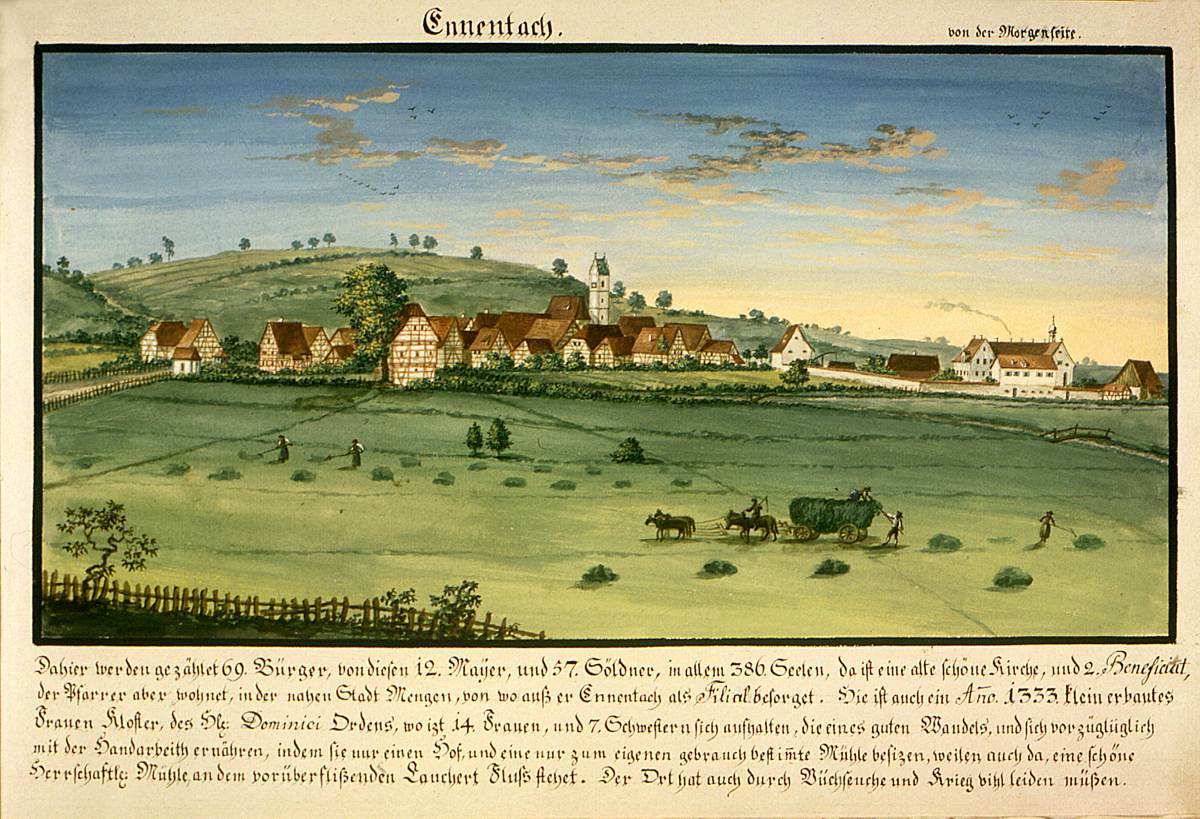 Ennentach.
von der Morgenseite.
Dahier werden gezählet 69. Bürger, von diesen 12. Mayer, und 57. Söldner, in allem 386. Seelen, da ist eine alte schöne Kirche, und 2. Beneficiat,
der Pfarrer aber wohnet, in der nahen Stadt Mengen, von wo auß er Ennentach als Filial besorget. Hie ist auch ein Año. 1333. klein erbautes
Frauen Kloster, des Hlg: Dominici Ordens, wo izt 14. Frauen, und 7. Schwestern sich aufhalten, die eines guten Wandels, und sich vorzüglüglich
mit der Handarbeith ernähren, indem sie nur einen Hof, und eine nur zum eigenen gebrauch bestim̅te Mühle besizen, weilen auch da, eine schöne
Herrschaftlg: Mühle, an dem vorüberflißenden Lauchert Fluss stehet. Der Ort hat auch durch Vüchseuche und Krieg vihl leiden müßen.